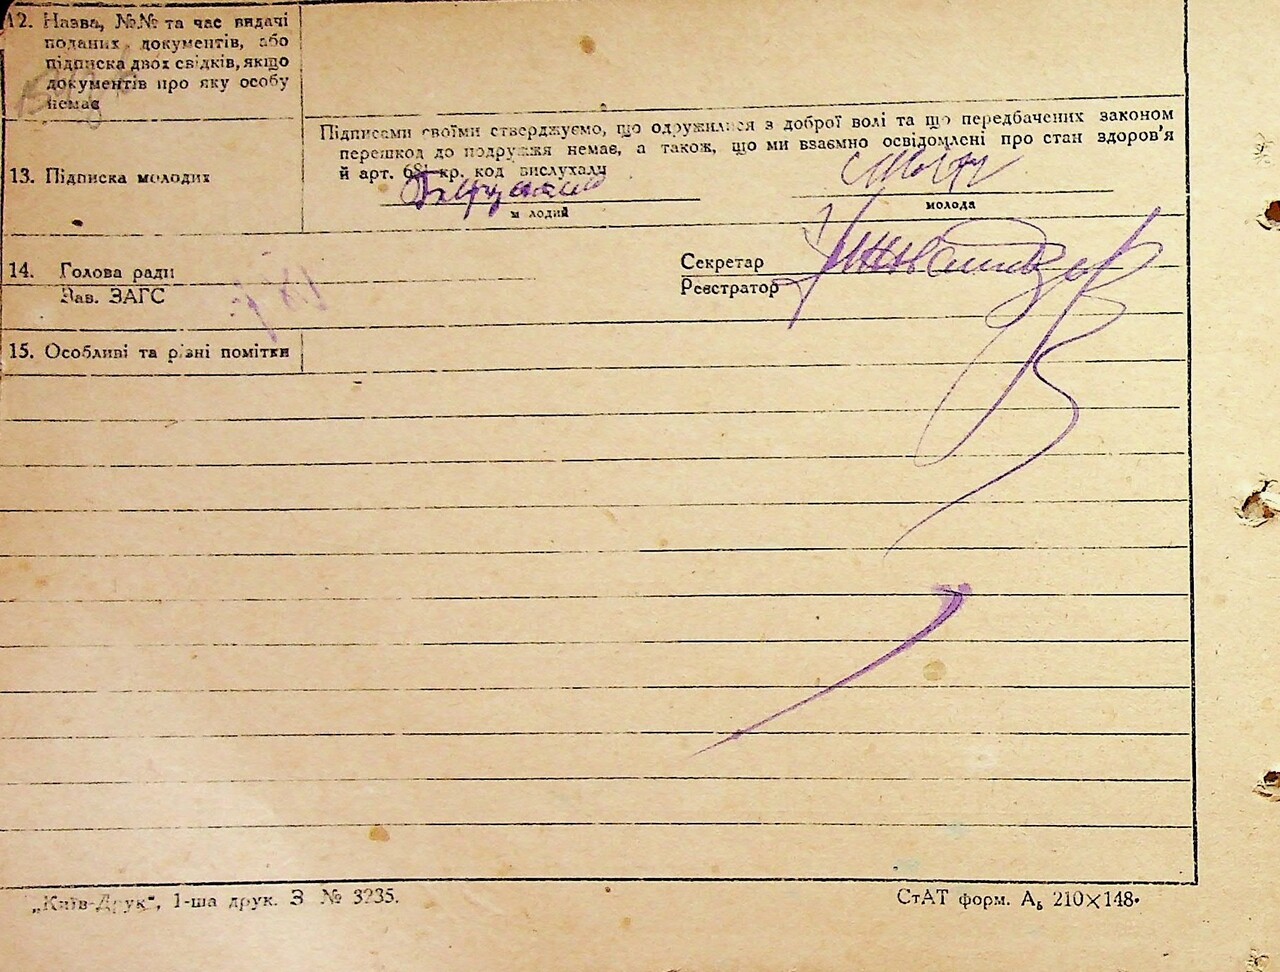 12. Назва, №№ та час видачі
поданих документів, або
підписка двох свідків, якщо
документів про яку особу
немає
Підписами своїми стверджуємо, що одружилися з доброї волі та що передбачених законом
перешкод до подружжя немає, а також, що ми взаємно освідомлені про стан здоров'я
й арт. 68¹ кр. код вислухали
13. Підписка молодих
молодий
молода
14. Голова ради
Зав. ЗАГС
Секретар
Реєстратор
15. Особливі та різні помітки
„Київ-Друк“, 1-ша друк. З № 3235.
СтАТ форм. А₅ 210×148.